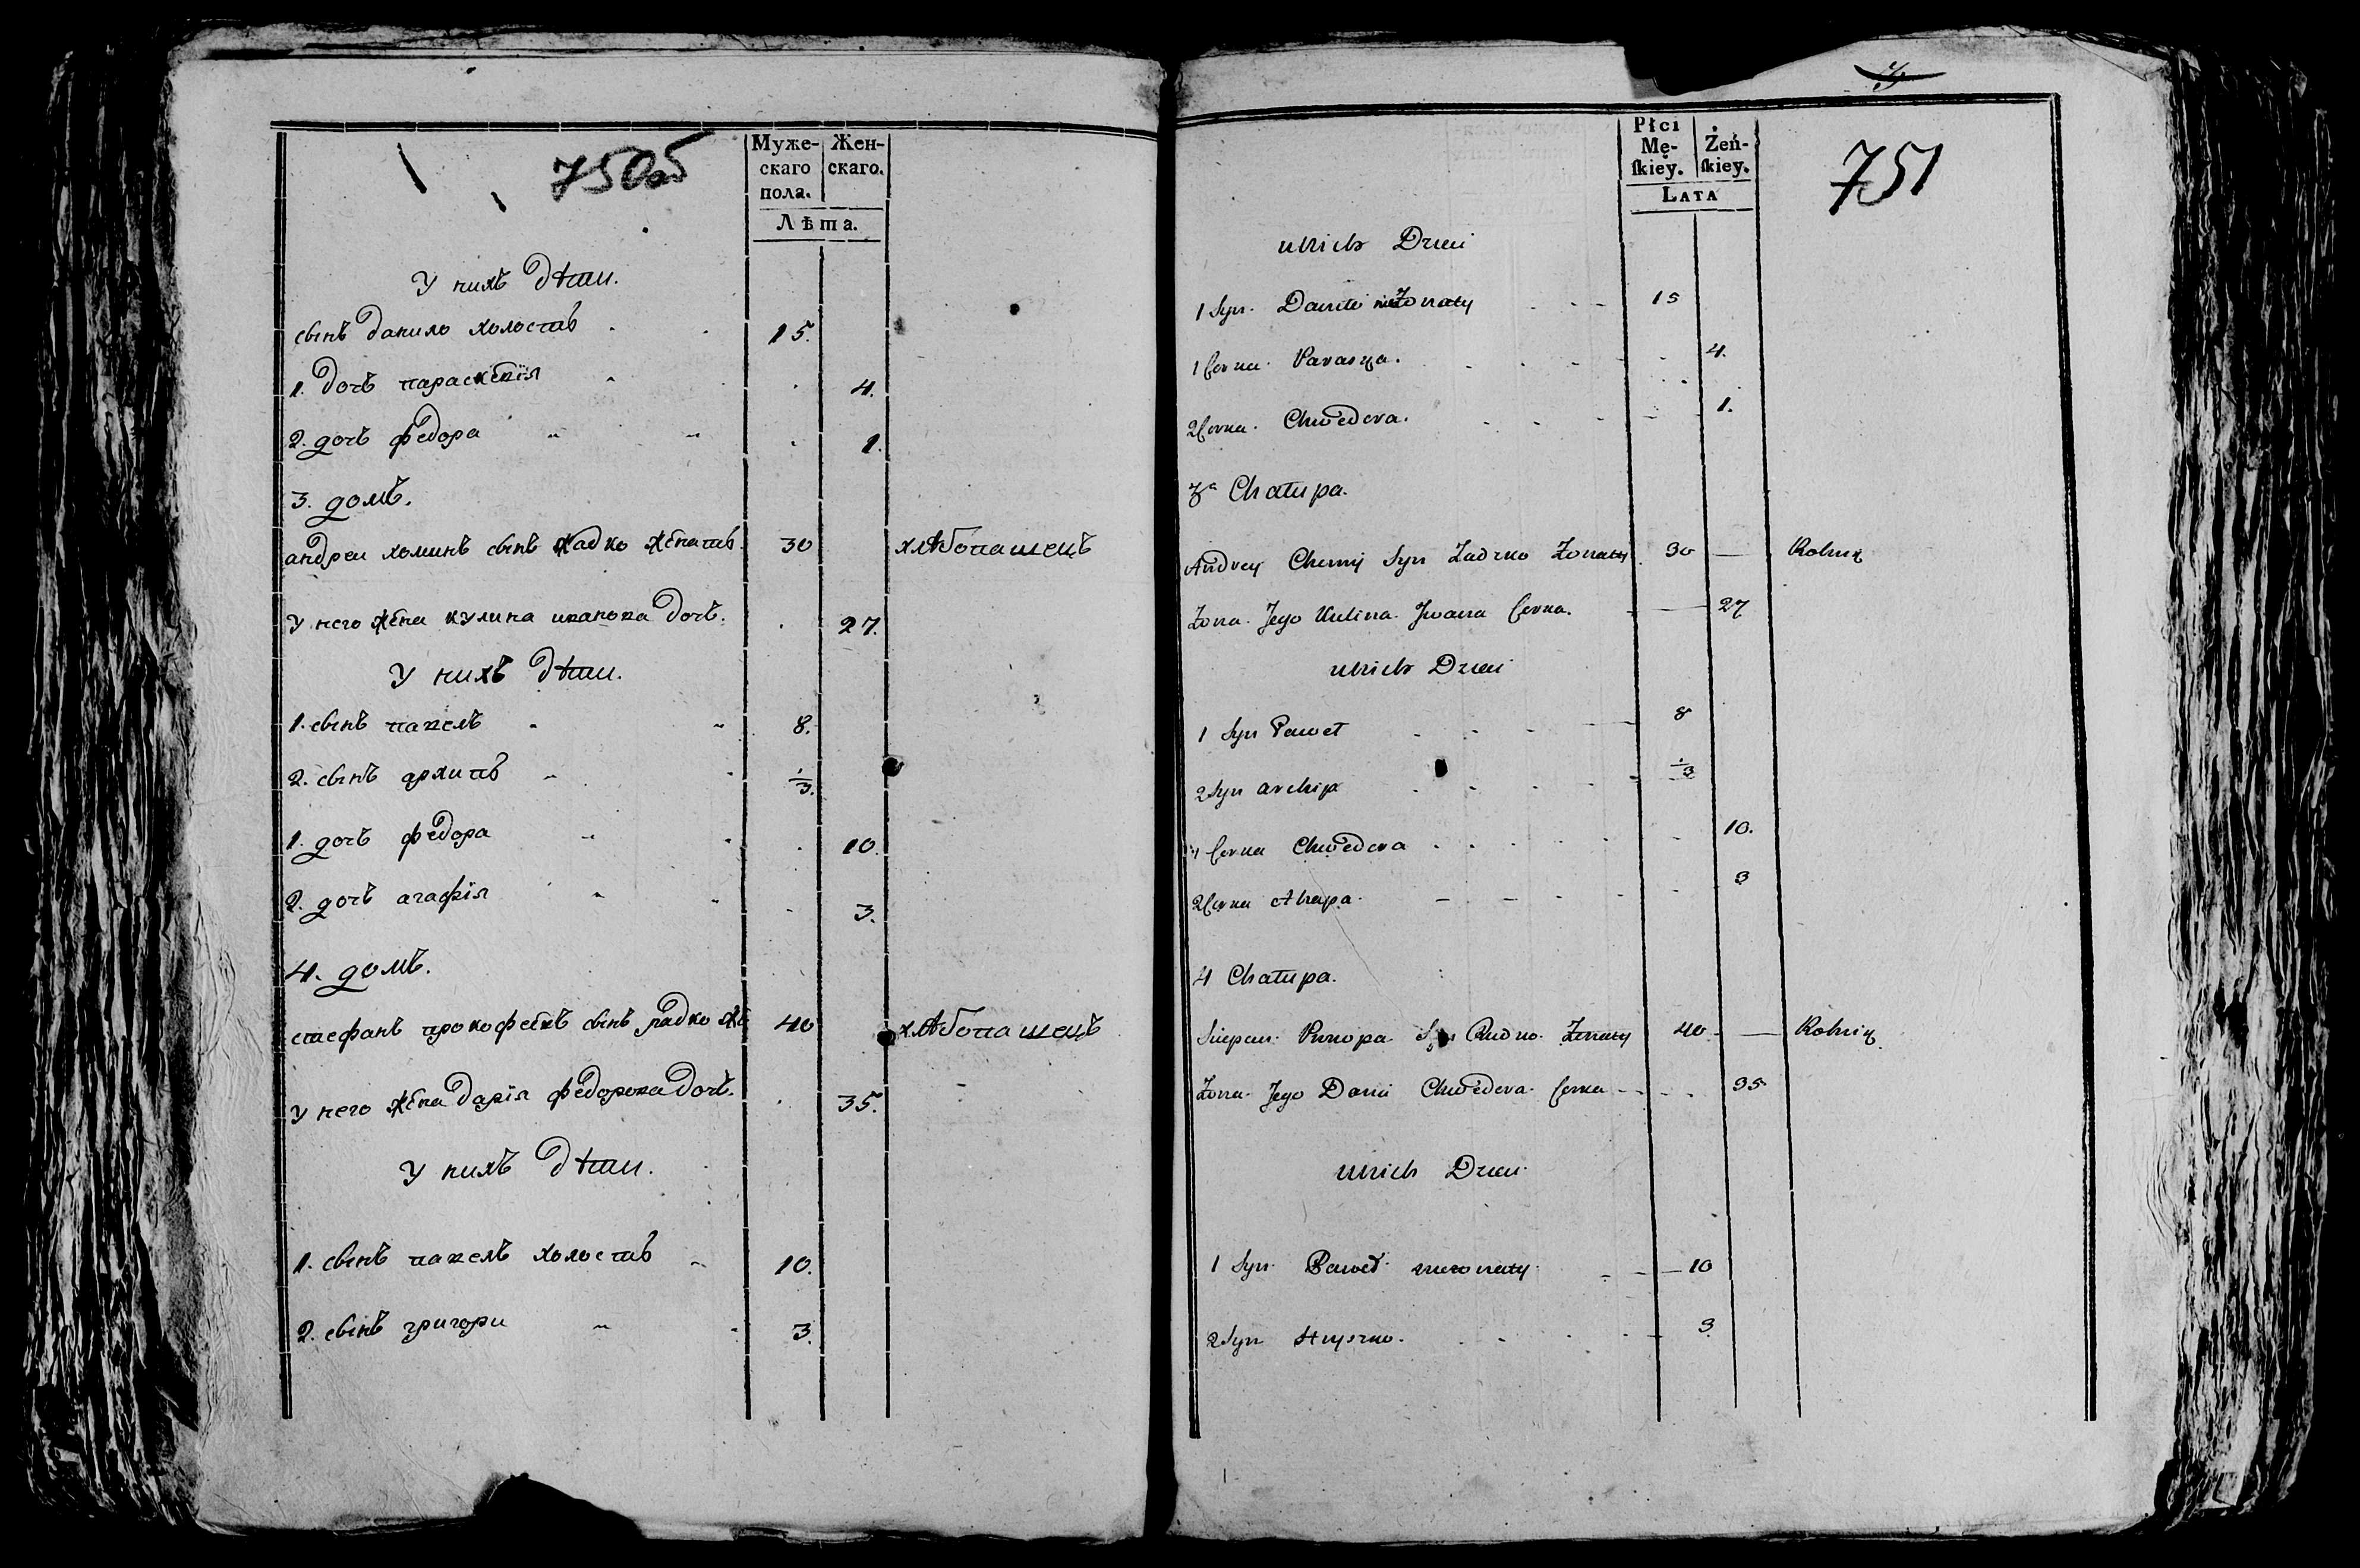 750об
Муже-
скаго
пола.
Жен-
скаго.
Лѣта.
У нихъ дѣти.
сынъ данило холостъ 15.
1. дочь параскевiя 4.
2. дочь федора 1.
3. домъ.
андреи хоминъ сынъ жадко женатъ 30 хлѣбопашецъ
у него жена кулина иванова дочь. 27.
У нихъ дѣти.
1. сынъ павелъ 8.
2. сынъ архипъ 1/3.
1. дочь федора 10.
2. дочь агафiя 3.
4. домъ.
стефанъ прокофевъ сынъ радко же 40 хлѣбопашецъ
у него жена дарiя федорова дочь. 35.
У нихъ дѣти.
1. сынъ павелъ холостъ 10.
2. сынъ григори 3.
Płci
Mę-
ſkiey.
Żeń-
ſkiey.
LATA
751
u nich Dzieci
1 Syn. Daniło nieżonaty 15
1 Corka. Paraszka. 4.
2 Corka. Chwedora. 1.
3a Chałupa.
Andrey Chomy Syn Żadzko Żonaty 30 Rolnik
Żona. Jego Kulina. Jwana Corka. 27
u nich Dzieci
1 Syn Paweł 8
2 Syn archip 1/3
1 Corka Chwedora 10.
2 Corka Ahapa. 3
4 Chałupa.
Sciepan. Prokopa Syn Radko. Żonaty 40 Rolnik
Żona. Jego Daria Chwedora. Corka 35
u nich Dzieci
1 Syn. Paweł nieżonaty. 10
2 Syn Hryszko. 3.